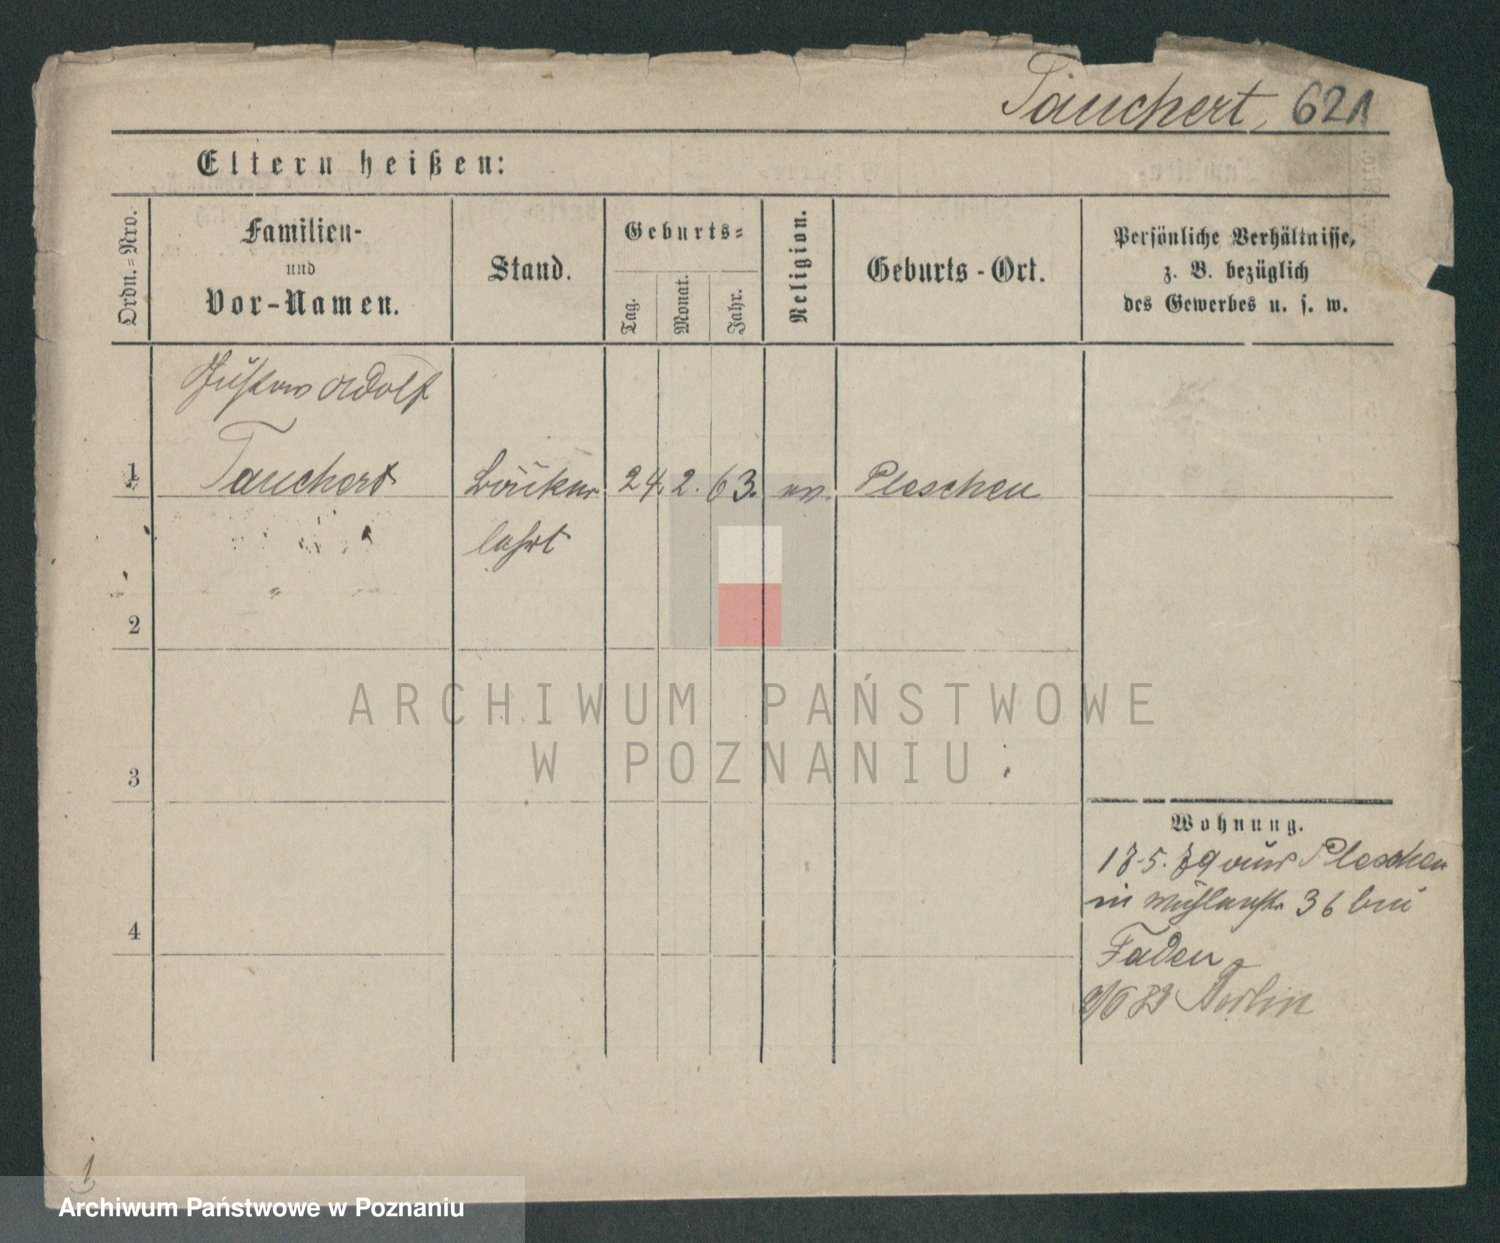 Tauchert, 621
Eltern heißen:
Ordn.=Nro.
Familien-
und
Vor-Namen.
Stand.
Geburts=
Tag.
Monat.
Jahr.
Religion.
Geburts-Ort.
Persönliche Verhältnisse,
z. B. bezüglich
des Gewerbes u. s. w.
Gustav Adolf
1 Tauchert 24. 2. 63. ev. Pleschen
2
3
4
ARCHIWUM PAŃSTWOWE
W POZNANIU
Wohnung.
Pleschen
in Mühlenstr 36 bei
Faden
Berlin
Archiwum Państwowe w Poznaniu